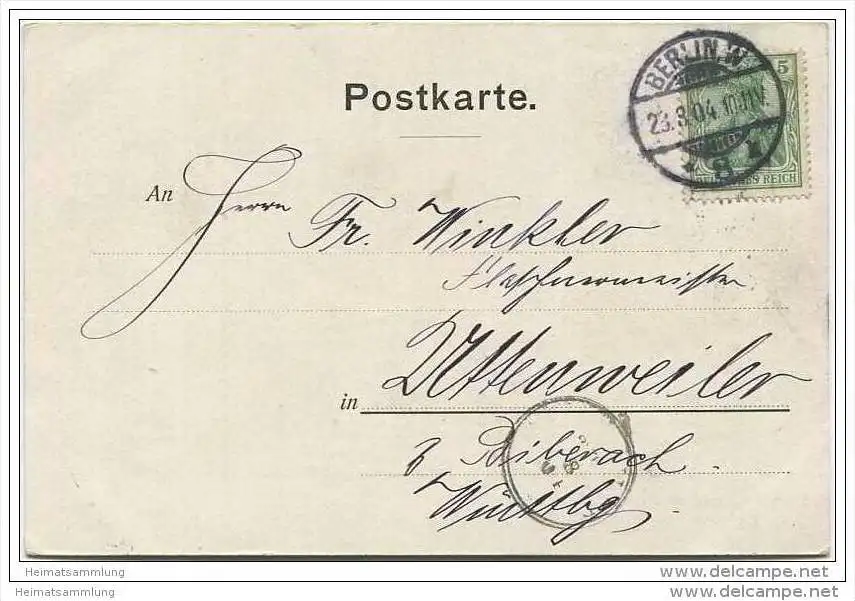 Postkarte.
BERLIN.W
23.3.04 10-11V.
* 8 *
5
REICH
An Herrn
Fr. Winkler
Flaschnermeister
in Uttenweiler
Biberach.
Württbg
Heimatsammlung
Heimatsammlung
www.delcampe.net
www.delcampe.net